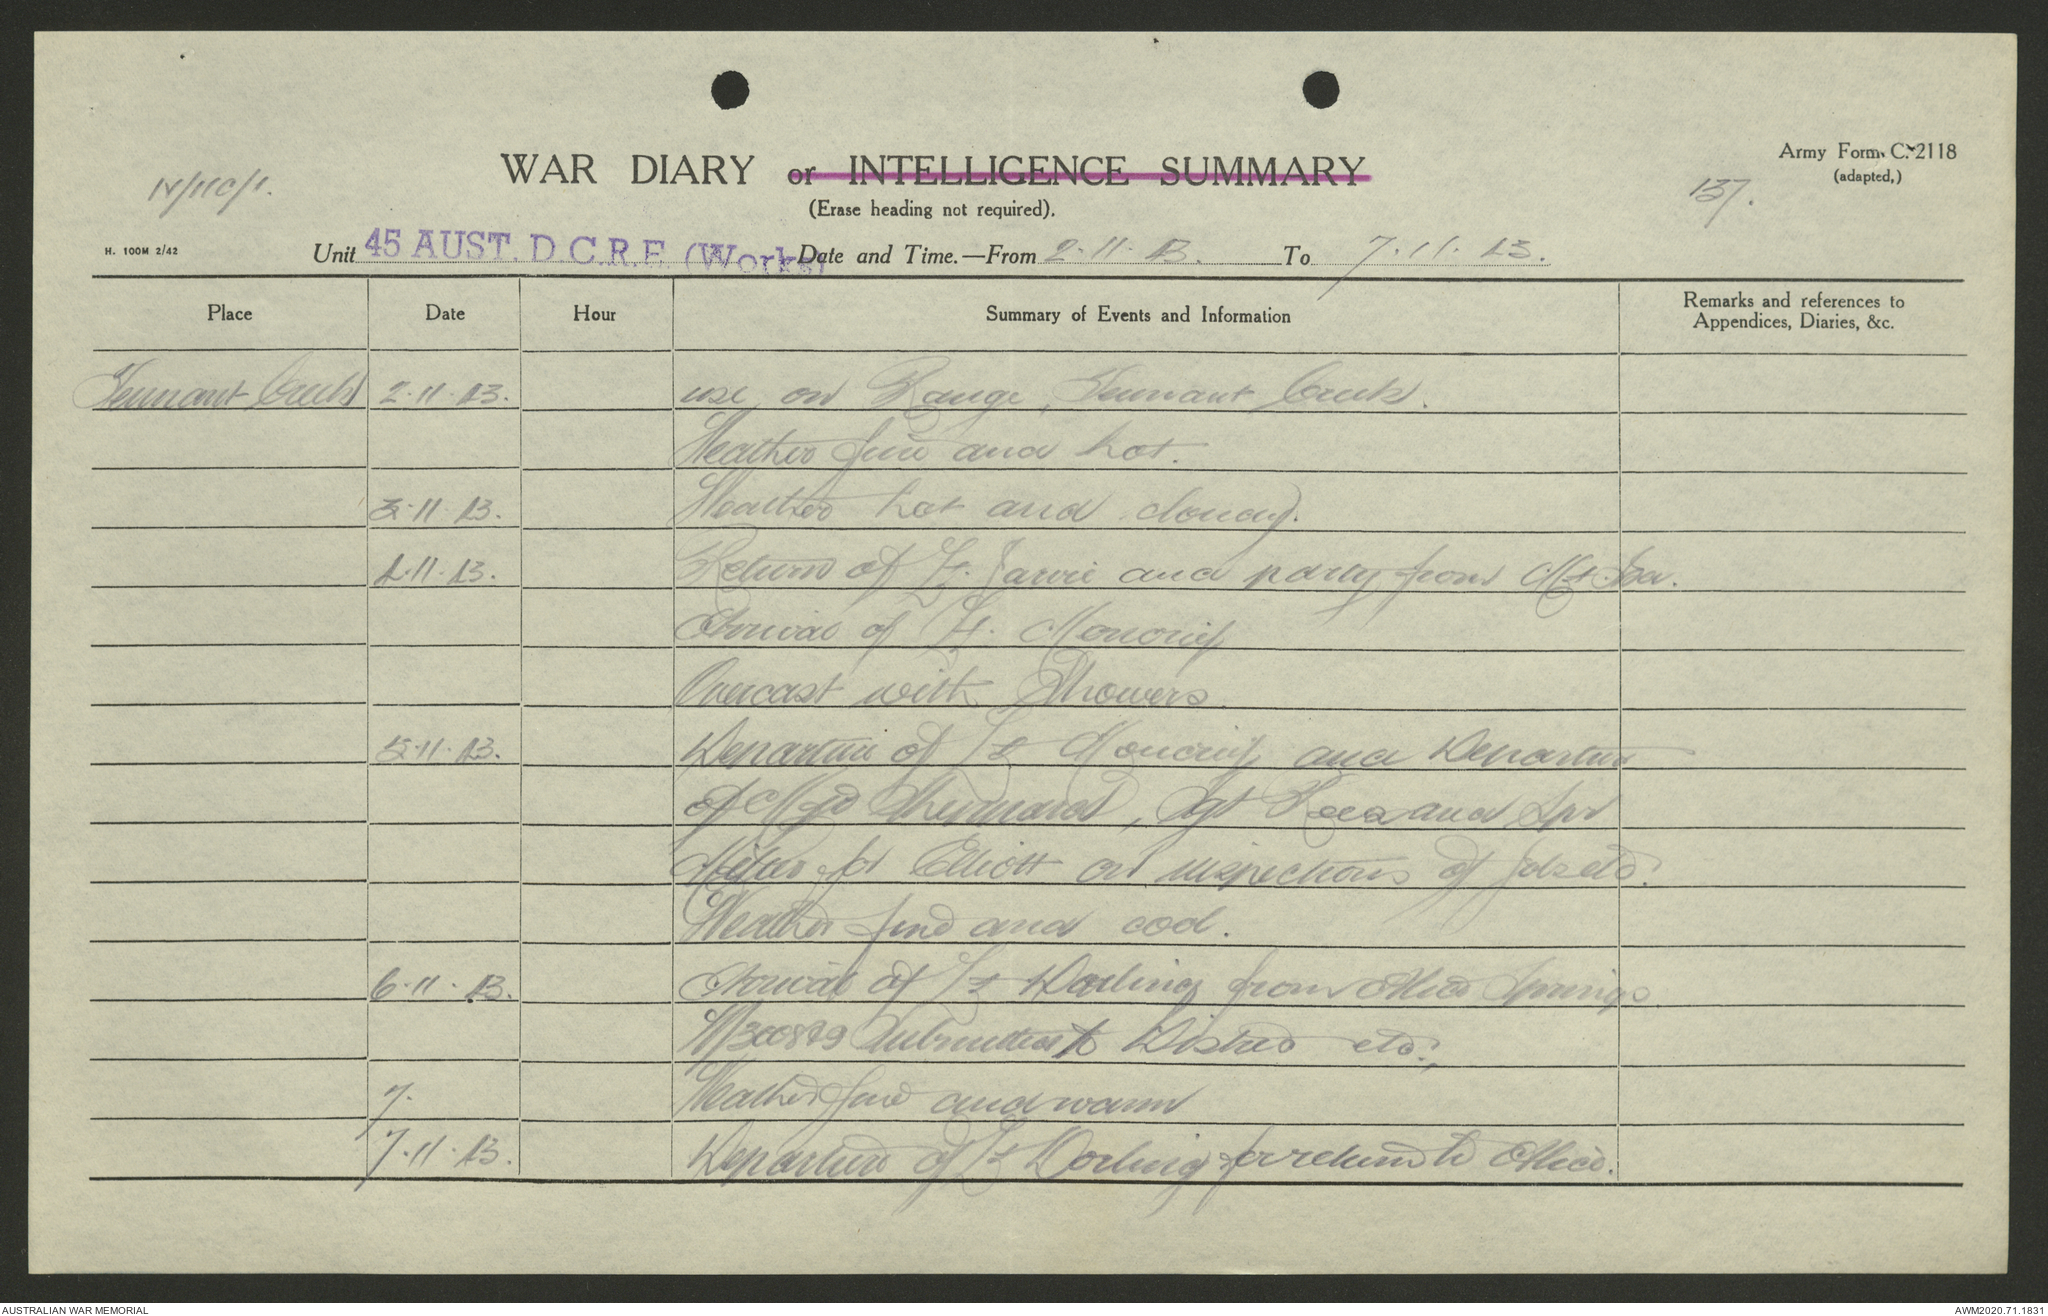 WAR DIARY or INTELLIGENCE SUMMARY
(Erase heading not required).
Army Form C. 2118
(adapted,)
137.
H. 100M 2/42
Unit 45 AUST. D.C.R.E. (Works) Date and Time.—From 2.11.43. To 7.11.43.
Place Date Hour Summary of Events and Information Remarks and references to
Appendices, Diaries, &c.
Tennant Creek 2.11.43. use on Range, Tennant Creek.
Weather fine and hot.
3.11.43. Weather hot and cloudy.
4.11.43. Return of Lt. Jarvie and party from Mt Isa.
Arrival of Lt. Moncrief
Overcast with Showers.
5.11.43. Departure of Lt Moncrief and Departure
of Maj Shephard, Sgt and Spr
for Elliott on inspections of Jobs etc.
Weather fine and cool.
6.11.43. Arrival of Lt Darling from Alice Springs
Submitted to District etc.,
7. Weather fine and warm
7.11.43. Departure of Lt Darling for return to Alice.
AUSTRALIAN WAR MEMORIAL
AWM2020.71.1831